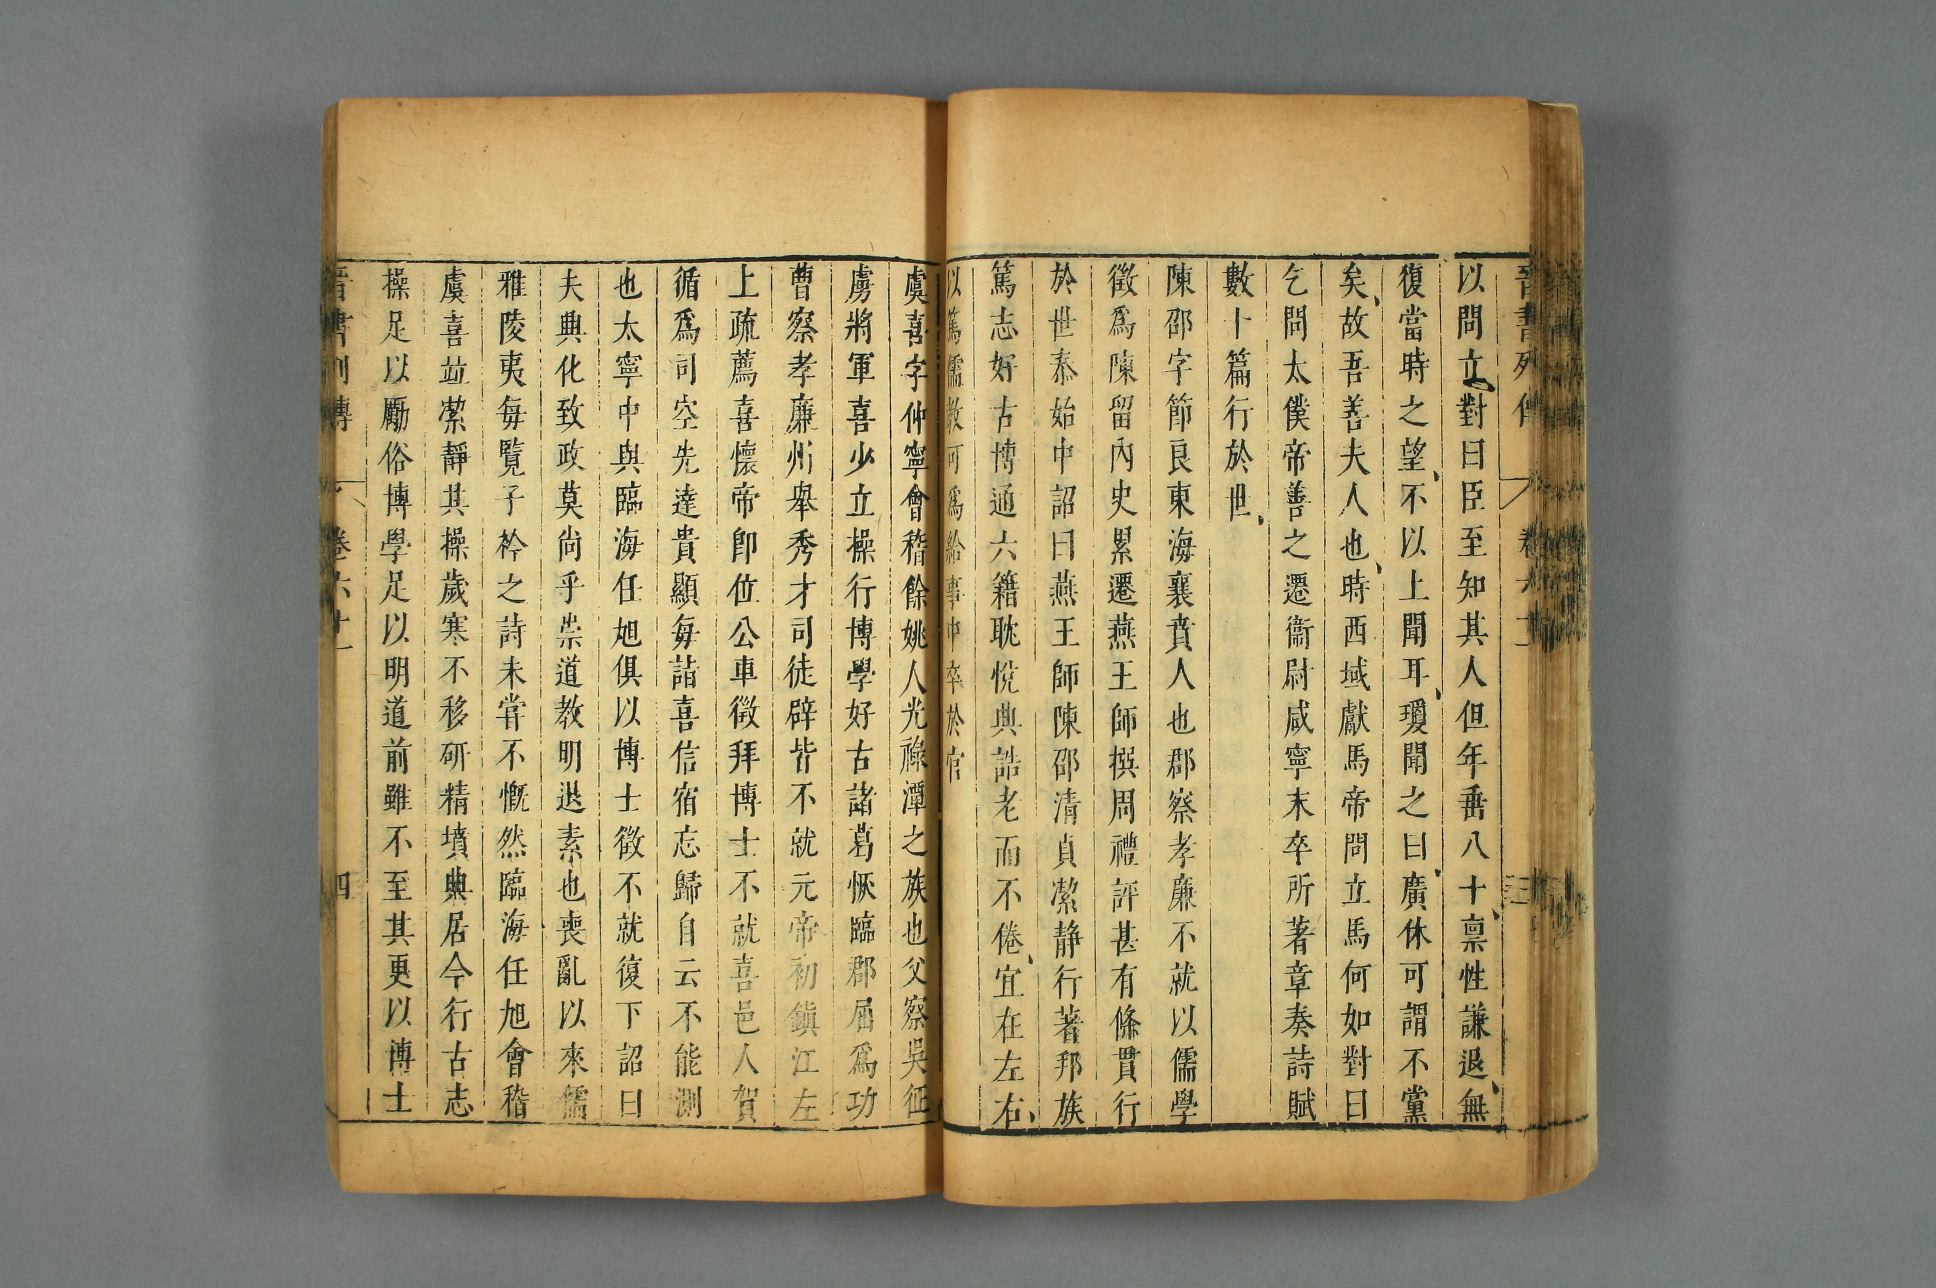 晉書列傳 卷六十一 三
以問立對曰臣至知其人但年垂八十禀性謙退無
復當時之望不以上聞耳瓊聞之曰廣休可謂不黨
矣故吾善夫人也時西域獻馬帝問立馬何如對曰
乞問太僕帝善之遷衞尉咸寧末卒所著章奏詩賦
數十篇行於世
陳邵字節良東海襄賁人也郡察孝廉不就以儒學
徵爲陳留內史累遷燕王師撰周禮評甚有條貫行
於世泰始中詔曰燕王師陳邵清貞潔静行著邦族
篤志好古博通六籍耽悅典誥老而不倦宜在左右
以篤儒教可爲給事中卒於官
虞喜字仲寧會稽餘姚人光祿潭之族也父察吳征
虜將軍喜少立操行博學好古諸葛恢臨郡屈爲功
曹察孝廉州舉秀才司徒辟皆不就元帝初鎭江左
上疏薦喜懷帝卽位公車徵拜博士不就喜邑人賀
循爲司空先達貴顯每詣喜信宿忘歸自云不能測
也太寧中與臨海任旭俱以博士徵不就復下詔曰
夫典化致政莫尚乎崇道教明退素也喪亂以來儒
雅陵夷每覽子衿之詩未嘗不慨然臨海任旭會稽
虞喜竝潔靜其操歲寒不移研精墳典居今行古志
操足以勵俗博學足以明道前雖不至其更以博士
晉書列傳 卷六十一 四